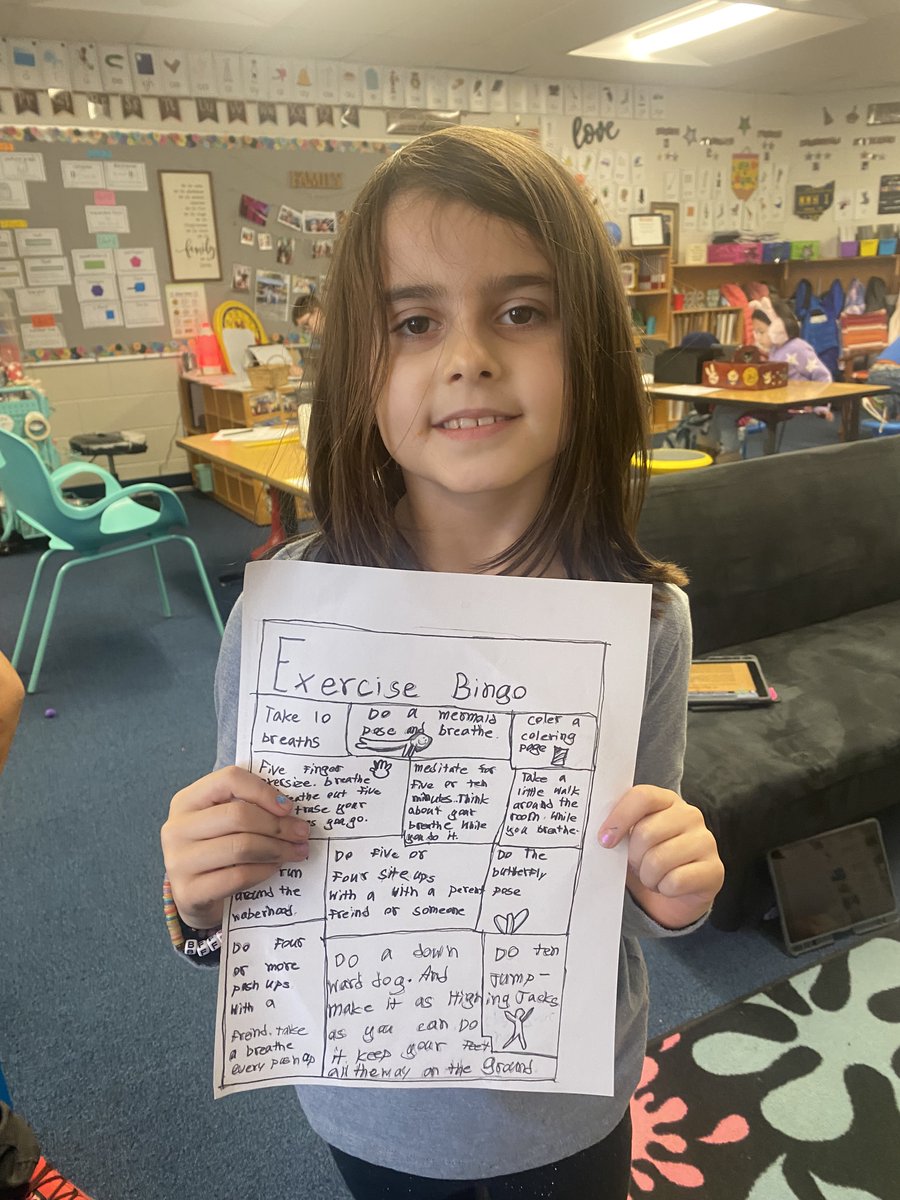 love
FAMILY
family
Exercise Bingo
Take 10
breaths
Do a mermaid
pose and breathe.
coler a
colering
page
Five Finger
exersize. breathe
breathe out five
trase your
as you go.
meditate for
five or ten
minutes. Think
about your
breathe while
you do it.
Take a
little walk
around the
room. While
you breathe.
run
around the
naberhood.
Do five or
four site ups
with a with a perent
freind or someone
Do The
butterfly
pose
Do four
or more
push ups
with a
freind. take
a breathe
every push up
Do a down
ward dog. And
make it as High
as you can Do
it keep your feet
all the way on the Ground
Do ten
Jump-
ing Jacks